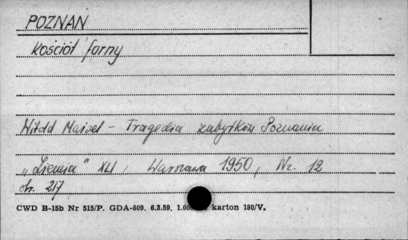 POZNAŃ
Kościół farny
Witold Maisel - Tragedia zabytków Poznania
„Ziemia" XLI, Warszawa 1950, Nr. 12
str. 217
CWD B-15b Nr 515/P. GDA-809. 6.3.59. 1.00 karton 180/V.